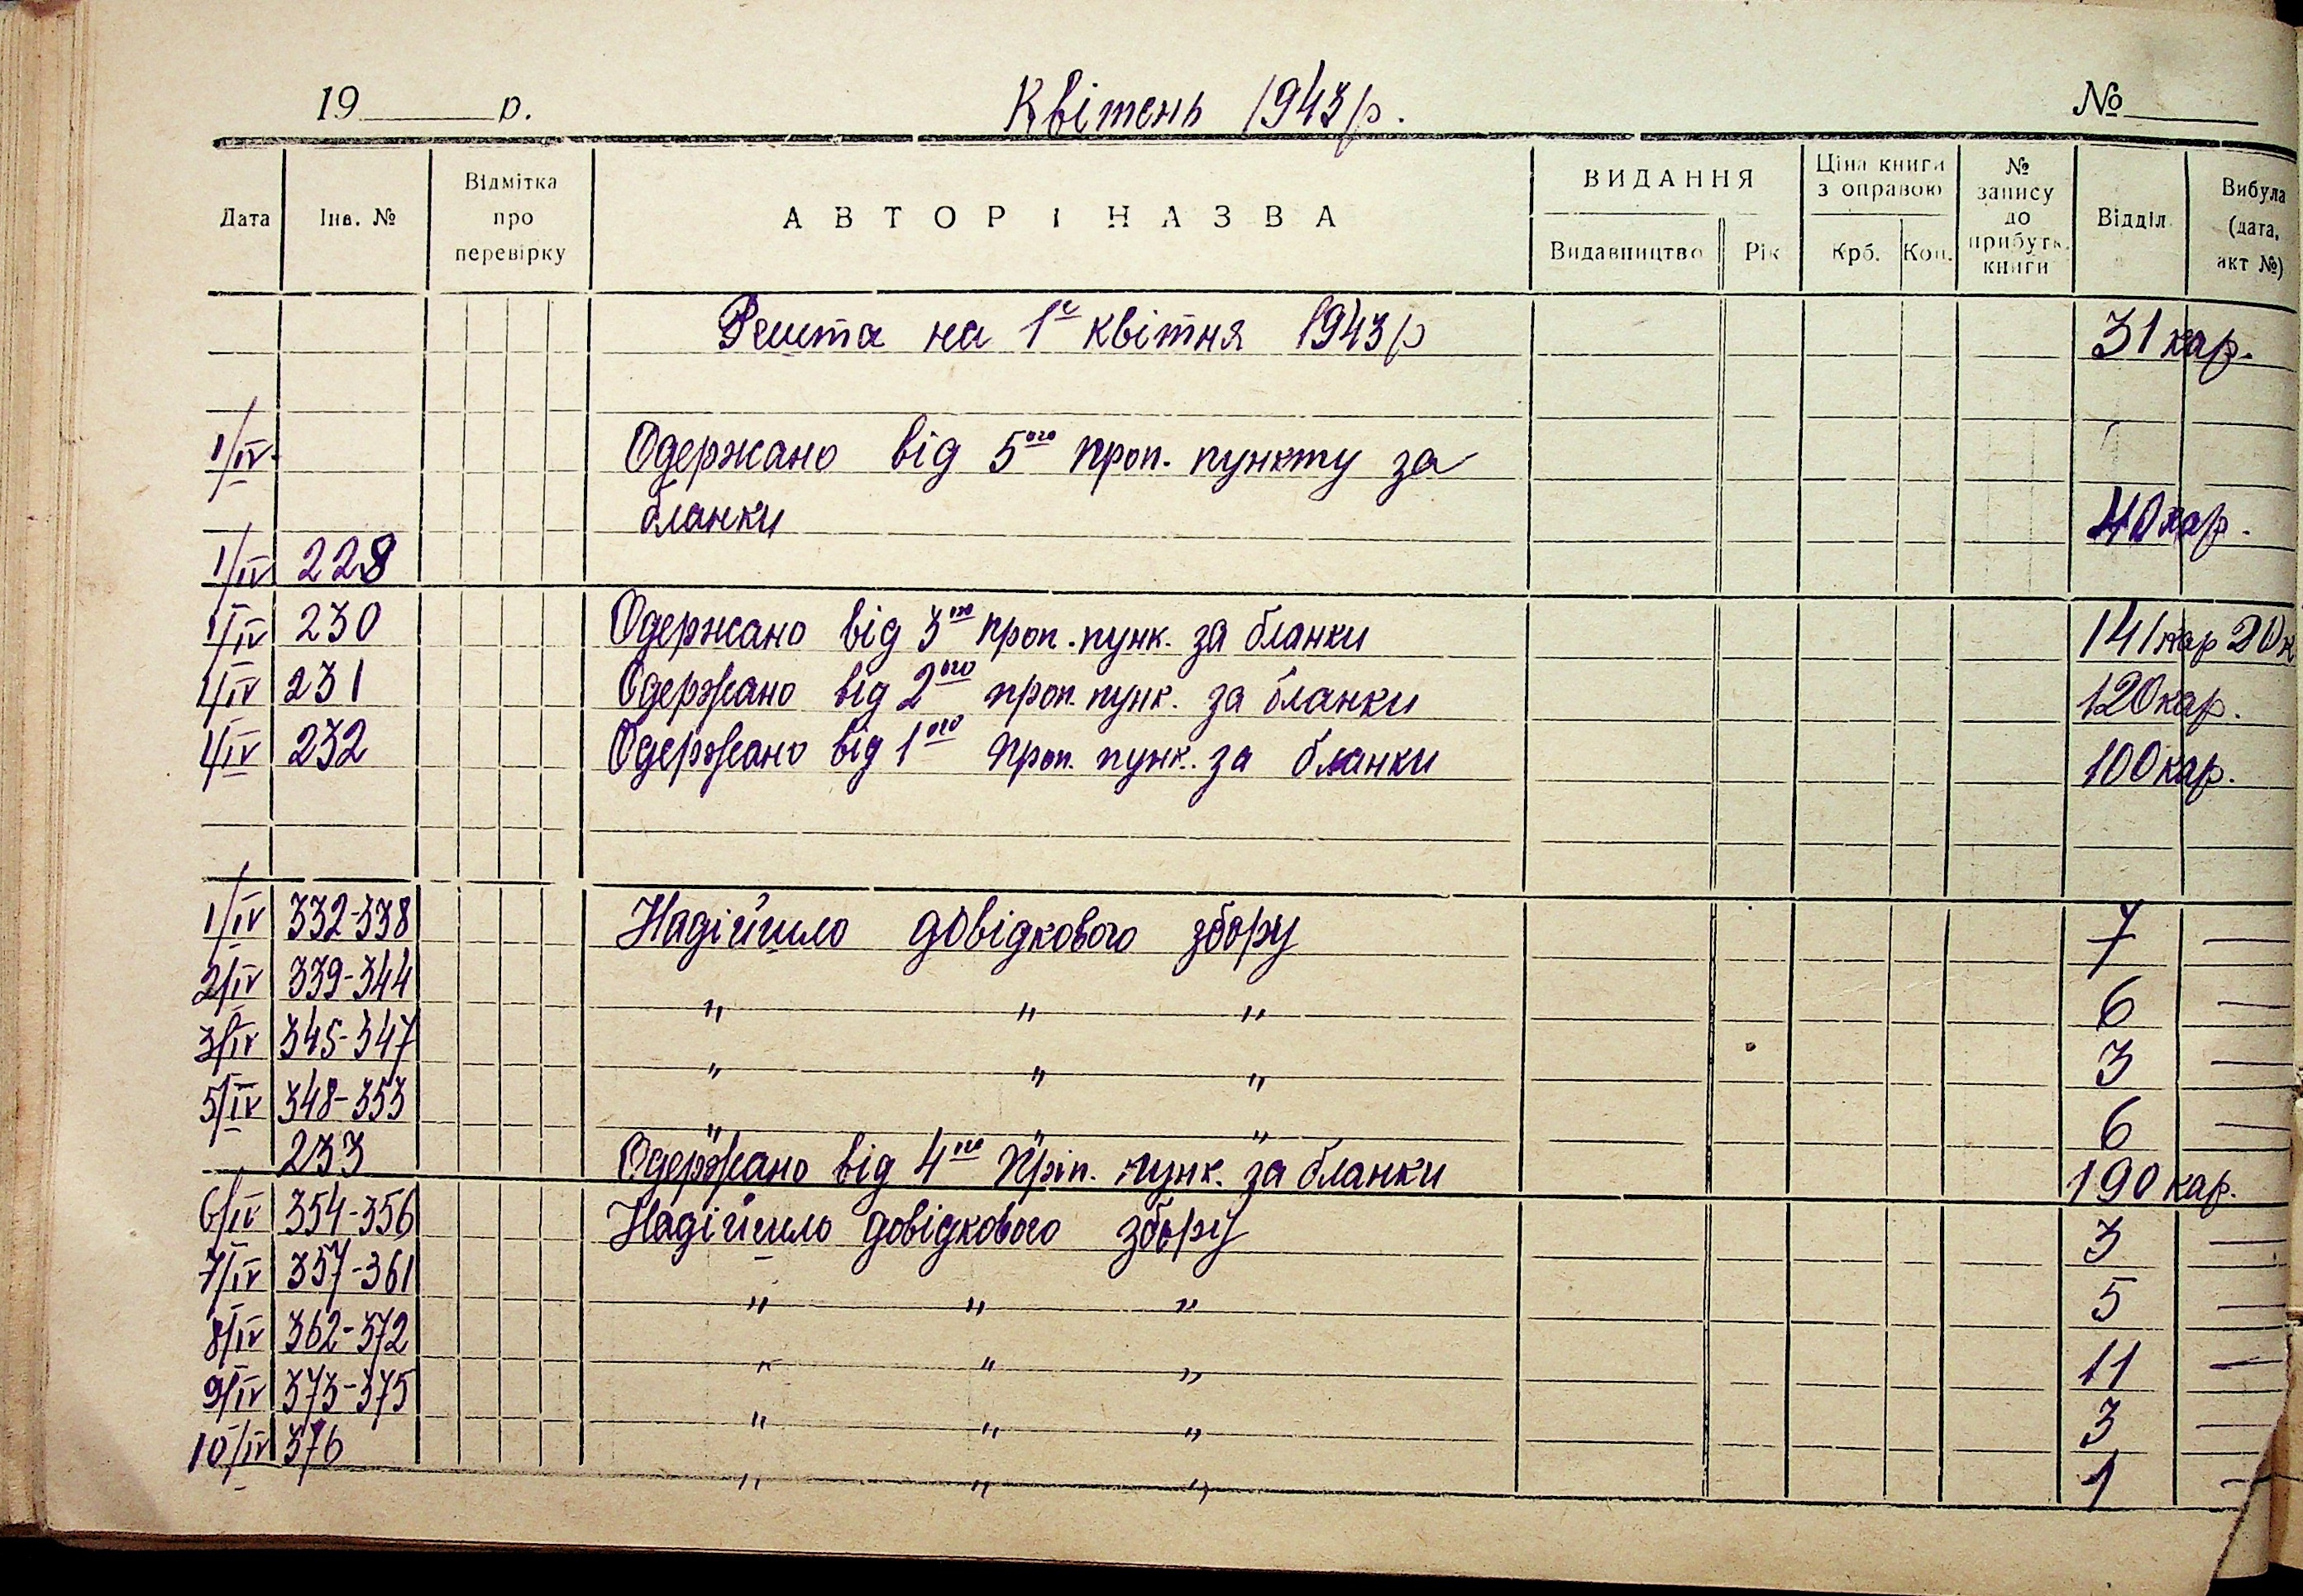 19____ р. Квітень 1943 р. №____
Дата Інв. № Відмітка про перевірку АВТОР І НАЗВА ВИДАННЯ Видавництво Рік Ціна книги з оправою Крб. Коп. № запису до прибутк. книги Відділ Вибула (дата, акт №)
Решта на 1е квітня 1943 р 31 кар.
1/IV Одержано від 5ого проп. пункту за
бланки 40 кар.
1/IV 228
1/IV 230 Одержано від 3ого проп. пунк. за бланки 141 кар 20 к
1/IV 231 Одержано від 2ого проп. пунк. за бланки 120 кар.
1/IV 232 Одержано від 1ого проп. пунк. за бланки 100 кар.
1/IV 332-338 Надійшло довідкового збору 7 —
2/IV 339-344 " " " 6 —
3/IV 345-347 " " " 3 —
5/IV 348-353 " " " 6 —
233 Одержано від 4ого проп. пунк. за бланки 190 кар.
6/IV 354-356 Надійшло довідкового збору 3 —
7/IV 357-361 " " " 5 —
8/IV 362-372 " " " 11 —
9/IV 373-375 " " " 3 —
10/IV 376 " " " 1 —